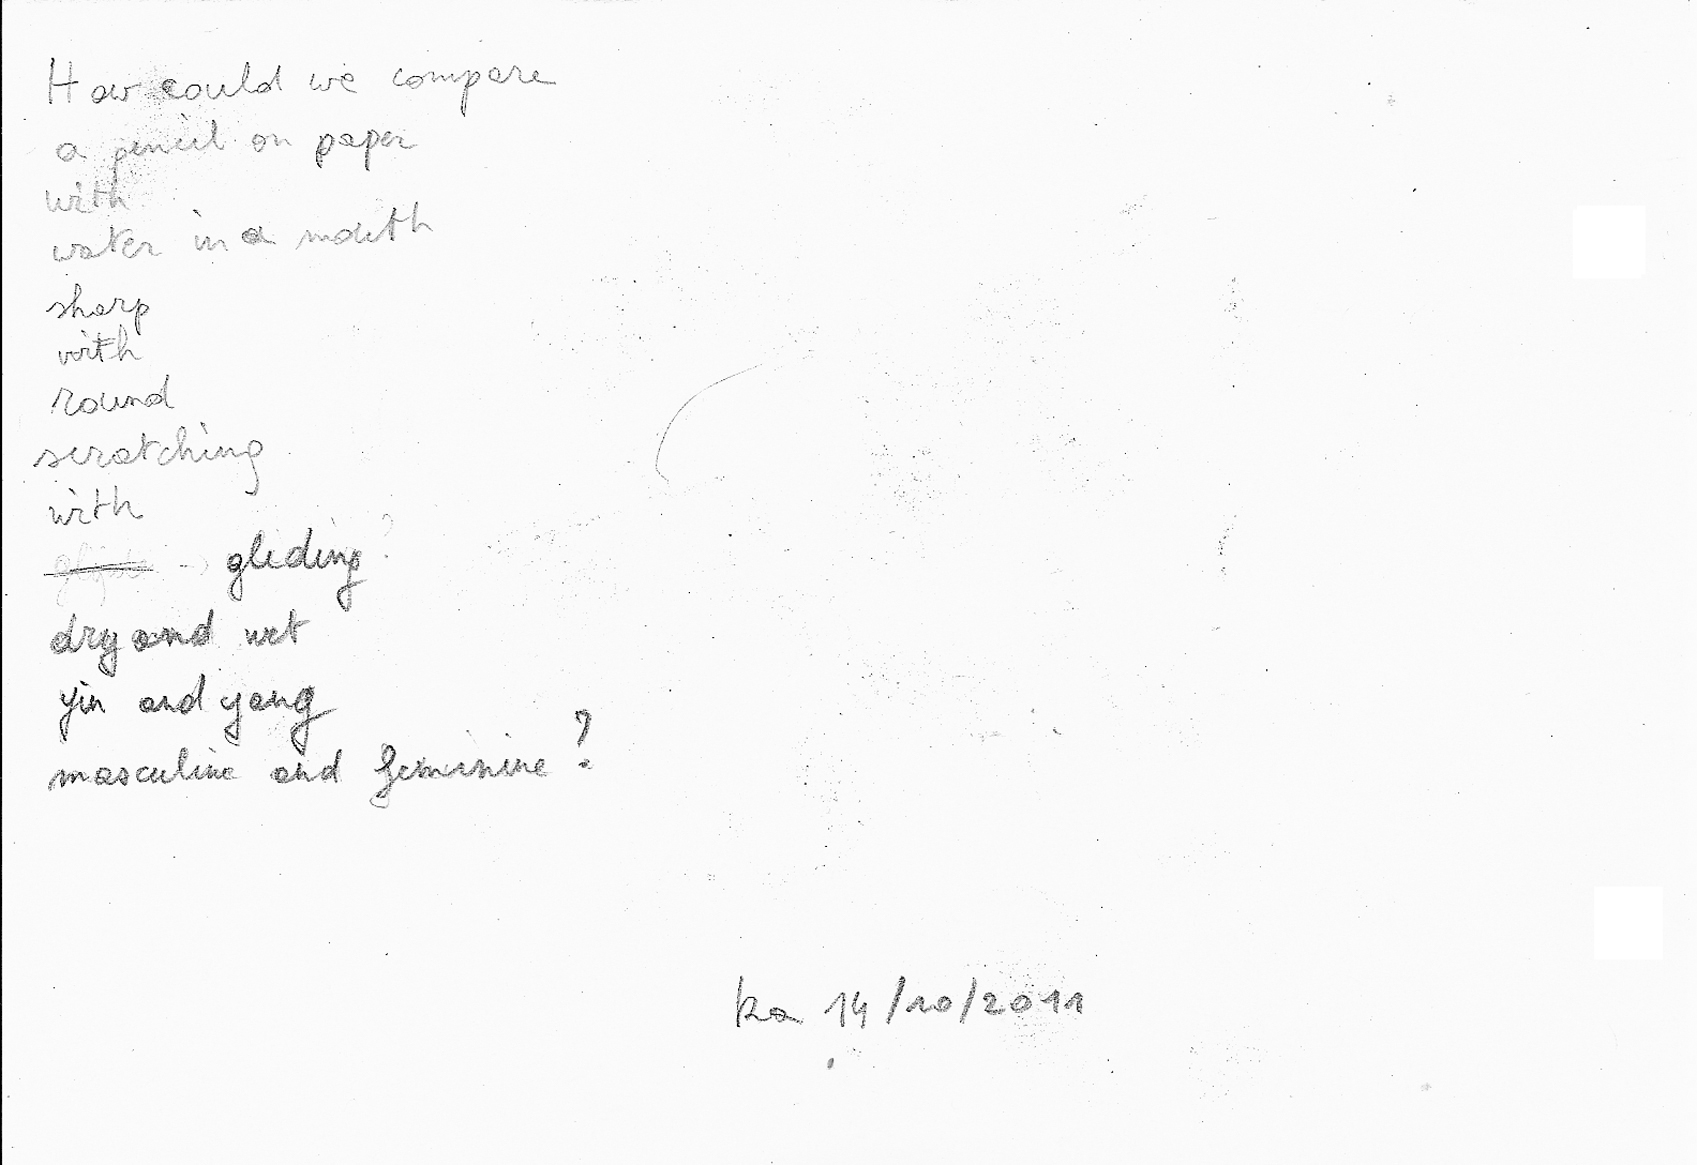 How could we compare
a pencil on paper
with
water in a mouth
sharp
with
round
scratching
with
gliding?
dry and wet
yin and yang
masculine and feminine?
ka 14/10/2011